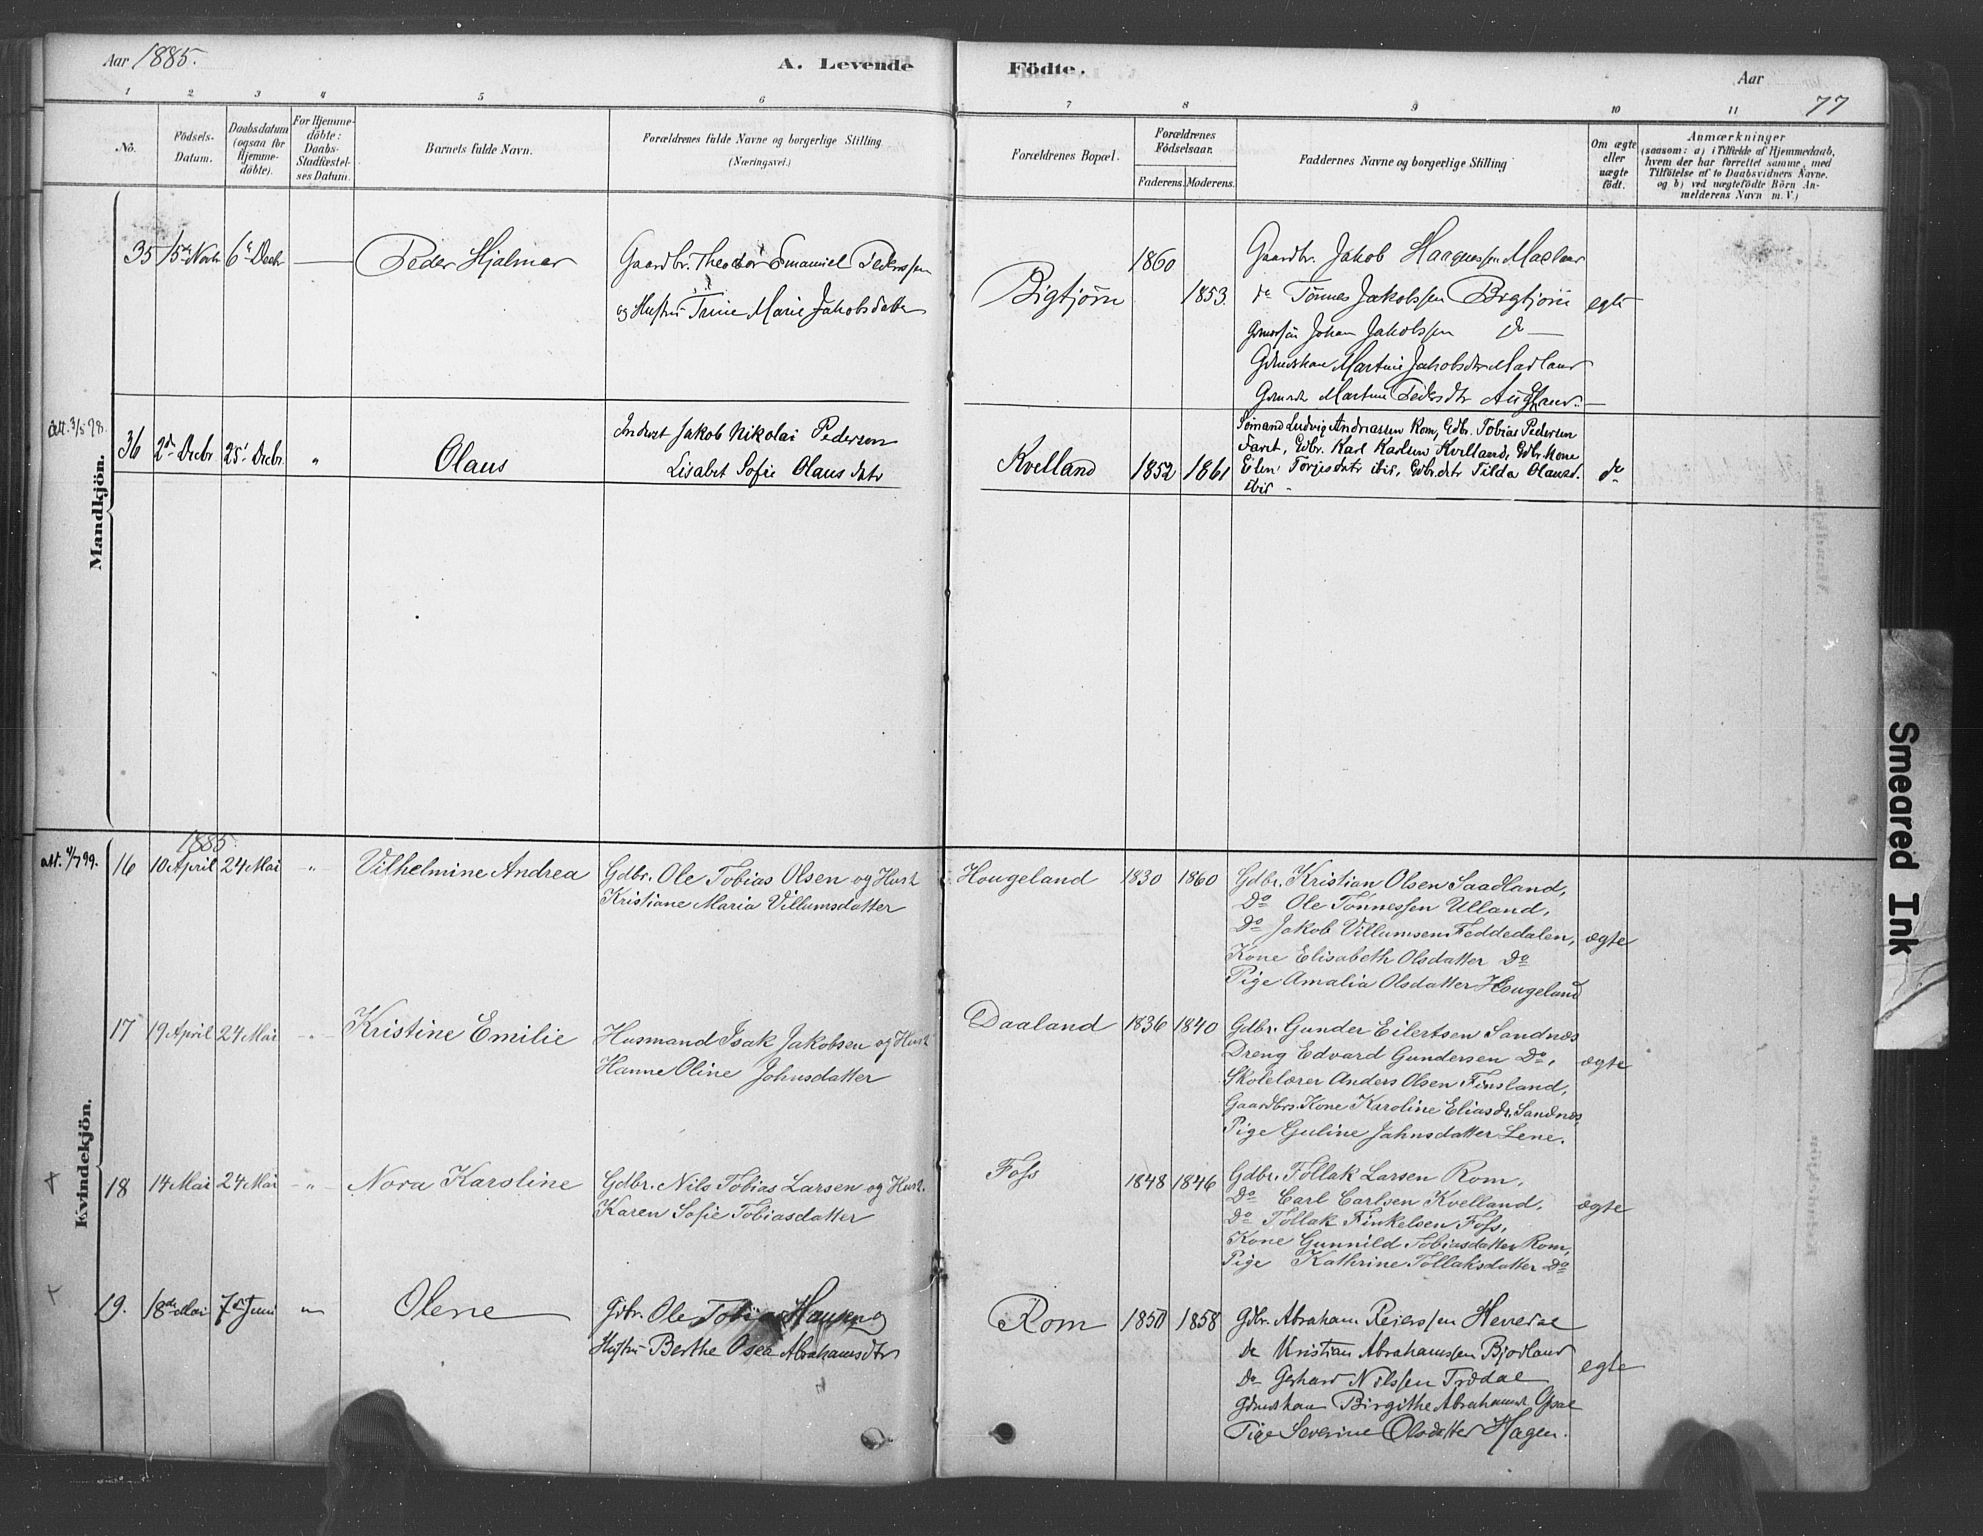 Aar 1885.
A. Levende
Födte.
Aar
77
1 2 3 4 5 6 7 8 9 10 11
No.
Födsels-Datum.
Daabsdatum (ogsaa for Hjemme-döbte).
For Hjemme-döbte: Daabs-Stadfæstel-ses Datum.
Barnets fulde Navn.
Forældrenes fulde Navne og borgerlige Stilling (Næringsvei.)
Forældrenes Bopæl.
Forældrenes Födselsaar.
Faderens.
Moderens.
Faddernes Navne og borgerlige Stilling
Om ægte eller uægte født.
Anmærkninger
(saasom: a) i Tilfælde af Hjemmedaab,
hvem der har forrettet samme, med
Tilföielse af to Daabsvidners Navne.
og b) ved uægtefödte Börn An-
melderens Navn m. V.)
Mandkjön.
35 15de Novbr 6te Decbr — Peder Hjalmar
Gaardbr. Theodor Emanuel Pederssen
og Hustru Trine Marie Jakobsdatter
Bigtjörn 1860 1853
Gaardbr. Jakob Haagenssen Madland
do Tönnes Jakobssen Bigtjörn
Johan Jakobssen do
Martine Jakobsdtr Madland
Martine Pedersdtr Augland
egte
att. 3/5 98.
36 2den Decbr 25de Decbr. " Olaus
Inderst Jakob Nikolai Pedersen
Lisabet Sofie Olausdatr
Kvelland 1852 1861
Sömand Ludvig Andreassen Rom, Gdbr. Tobias Pedersen
Faret, Gdbr. Karl Karlsen Kvelland, Gdbr. Kone
Eilen Torjesdatr ibid, Gdbr.datr Tilda Olausd.
ibid.
do
Kvindekjön.
1885.
att. 4/7 99.
16 10 April 24 Mai " Vilhelmine Andrea
Gdbr. Ole Tobias Olsen og Hust.
Kristiane Maria Villumsdatter
Hougeland 1830 1860
Gdbr. Kristian Olsen Saadland,
Do Ole Tönnessen Ulland,
Do Jakob Villumsen Feddedalen,
Kone Elisabeth Olsdatter Do
Pige Amalia Olsdatter Hougeland
ægte
17 19 April 24 Mai " Kristine Emilie
Husmand Isak Jakobsen og Hust.
Hanne Oline Johnsdatter
Daaland 1836 1840
Gdbr. Gunder Eilertsen Sandnes
Dreng Edvard Gundersen Do,
Skolelærer Anders Olsen Finsland,
Gaardbrs. Kone Karoline Eliasdr. Sandnes,
Pige Guline Jahnsdatter Lene.
ægte
+
18 14 Mai 24 Mai " Nora Karoline
Gdbr. Nils Tobias Larsen og Hust.
Karen Sofie Tobiasdatter
Foss 1848 1846
Gdbr. Tollak Larsen Rom,
Do Carl Carlsen Kvelland,
Do Tollak Finkelsen Foss,
Kone Gunnild Tobiasdatter Rom,
Pige Kathrine Tollaksdatter Do
ægte
+
19. 18de Mai 7de Juni " Olene
Gdbr. Ole Tobias Hansen og
Hustru Berthe Osea Abrahamsdtr
Rom 1850 1858
Gdbr. Abraham Reierssen Herredal
do Kristian Abrahamssen Bjodland
do Gerhard Nilssen Trædal
Birgithe Abrahamsd.
Pige Severine Olsdatter Hagen.
egte
Smeared Ink